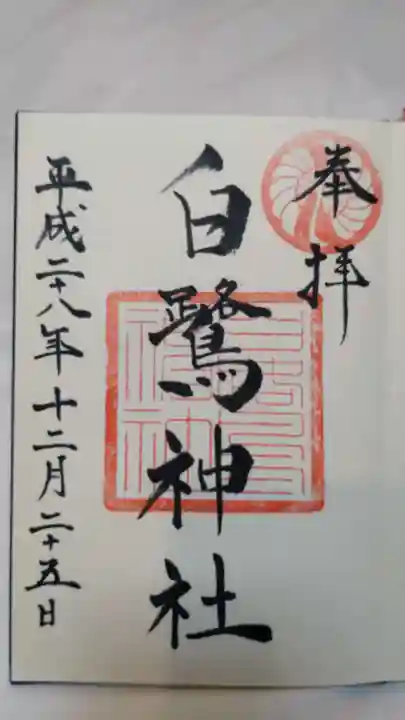 奉拝
白鷺神社
平成二十八年十二月二十五日